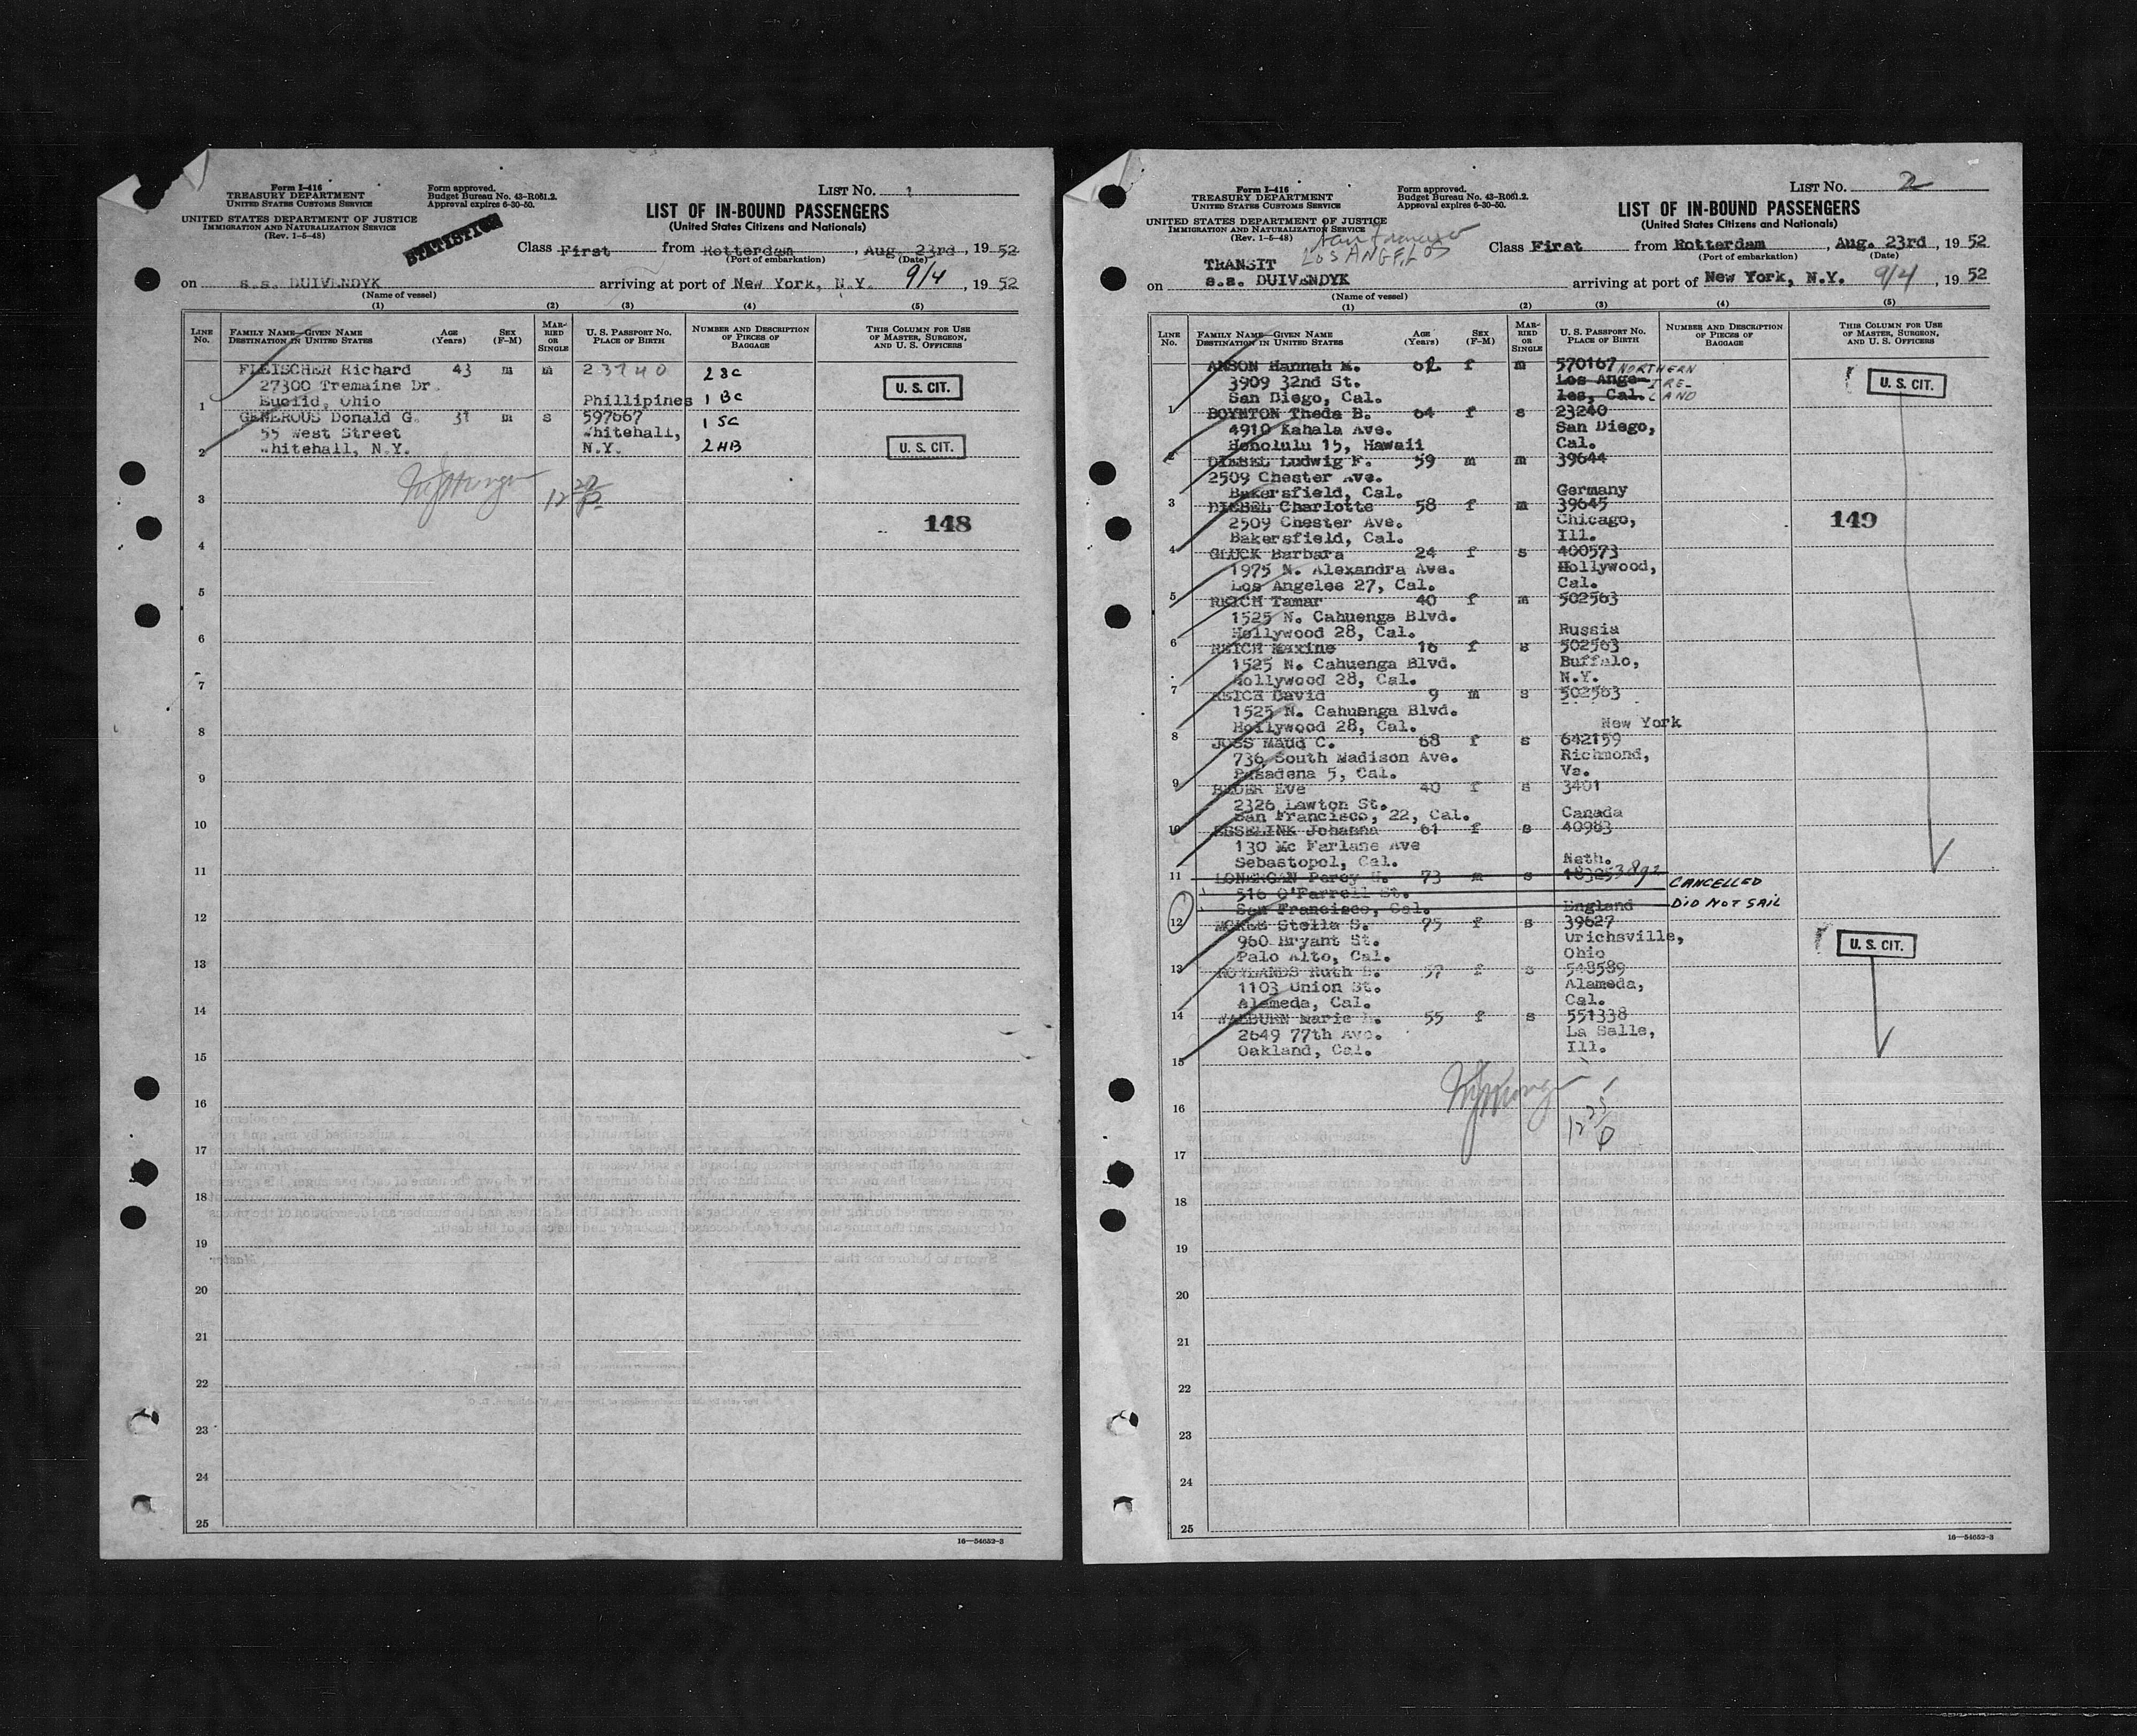 Form I-416
TREASURY DEPARTMENT
UNITED STATES CUSTOMS SERVICE
UNITED STATES DEPARTMENT OF JUSTICE
IMMIGRATION AND NATURALIZATION SERVICE
(Rev. 1-5-48)
Form approved.
Budget Bureau No. 43-R061.2.
Approval expires 6-30-50.
STATISTICS
LIST No. 1
LIST OF IN-BOUND PASSENGERS
(United States Citizens and Nationals)
Class First from Rotterdam, Aug. 23rd, 1952
(Port of embarkation) (Date)
on s.s. DUIVENDYK arriving at port of New York, N.Y. 9/4, 1952
(Name of vessel)
(1) (2) (3) (4) (5)
LINE No. FAMILY NAME—GIVEN NAME DESTINATION IN UNITED STATES AGE (Years) SEX (F-M) MARRIED OR SINGLE U. S. PASSPORT No. PLACE OF BIRTH NUMBER AND DESCRIPTION OF PIECES OF BAGGAGE THIS COLUMN FOR USE OF MASTER, SURGEON, AND U. S. OFFICERS
FLEISCHER Richard 43 m m 23740 2 SC
27300 Tremaine Dr. U. S. CIT.
1 Euclid, Ohio Phillipines 1 BC
GENEROUS Donald G. 31 m s 597667 1 SC
55 West Street Whitehall,
2 Whitehall, N.Y. N.Y. 2 HB U. S. CIT.
3
148
4
5
6
7
8
9
10
11
12
13
14
15
16
17
18
19
20
21
22
23
24
25
16—54652-3
Form I-416
TREASURY DEPARTMENT
UNITED STATES CUSTOMS SERVICE
UNITED STATES DEPARTMENT OF JUSTICE
IMMIGRATION AND NATURALIZATION SERVICE
(Rev. 1-5-48)
San Francisco
LOS ANGELOS
Form approved.
Budget Bureau No. 43-R061.2.
Approval expires 6-30-50.
LIST No. 2
LIST OF IN-BOUND PASSENGERS
(United States Citizens and Nationals)
Class First from Rotterdam, Aug. 23rd, 1952
(Port of embarkation) (Date)
TRANSIT
on s.s. DUIVENDYK arriving at port of New York, N.Y. 9/4, 1952
(Name of vessel)
(1) (2) (3) (4) (5)
LINE No. FAMILY NAME—GIVEN NAME DESTINATION IN UNITED STATES AGE (Years) SEX (F-M) MARRIED OR SINGLE U. S. PASSPORT No. PLACE OF BIRTH NUMBER AND DESCRIPTION OF PIECES OF BAGGAGE THIS COLUMN FOR USE OF MASTER, SURGEON, AND U. S. OFFICERS
ANSON Hannah M. 62 f m 570167 NORTHERN
3909 32nd St. Los Ange- IRE- U. S. CIT.
San Diego, Cal. les, Cal. LAND
1 BOYNTON Theda B. 64 f s 23240
4910 Kahala Ave. San Diego,
Honolulu 15, Hawaii Cal.
2 DIESEL Ludwig F. 59 m m 39644
2509 Chester Ave.
Bakersfield, Cal. Germany
3 DIESEL Charlotte 58 f m 39645
2509 Chester Ave. Chicago, 149
Bakersfield, Cal. Ill.
4 GLUCK Barbara 24 f s 400573
1975 N. Alexandra Ave. Hollywood,
Los Angeles 27, Cal. Cal.
5 REICH Tamar 40 f m 502563
1525 N. Cahuenga Blvd.
Hollywood 28, Cal. Russia
6 REICH Maxine 16 f s 502563
1525 N. Cahuenga Blvd. Buffalo,
Hollywood 28, Cal. N.Y.
7 REICH David 9 m s 502563
1525 N. Cahuenga Blvd.
Hollywood 28, Cal. New York
8 JOSS Maud C. 68 f s 642159
736 South Madison Ave. Richmond,
Pasadena 5, Cal. Va.
9 BEDER Eve 40 f s 3401
2326 Lawton St.
San Francisco, 22, Cal. Canada
10 ESSELINK Johanna 61 f s 40963
130 Mc Farlane Ave
Sebastopol, Cal. Neth.
11 LONERGAN Percy H. 73 m s CANCELLED
516 O'Farrell St.
San Francisco, Cal. England DID NOT SAIL
12 MCKEE Stella S. 75 f s 39627
960 Bryant St. Urichsville, U. S. CIT.
Palo Alto, Cal. Ohio
13 ROWLANDS Ruth 57 f s 548589
1103 Union St. Alameda,
Alameda, Cal. Cal.
14 WALBURN Marie 55 f s 551338
2649 77th Ave. La Salle,
Oakland, Cal. Ill.
15
16
17
18
19
20
21
22
23
24
25
16—54652-3